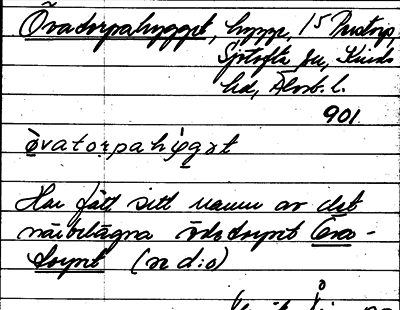 Övatorpahygget, hygge, 15 Prustorp,
Sjötofta sn, Kinds
hd, Älvsb. l.
901
òvatorpahi̭gət
Har fått sitt namn av det
närbelägna ödetorpet Öva-
torpet (se d:o)